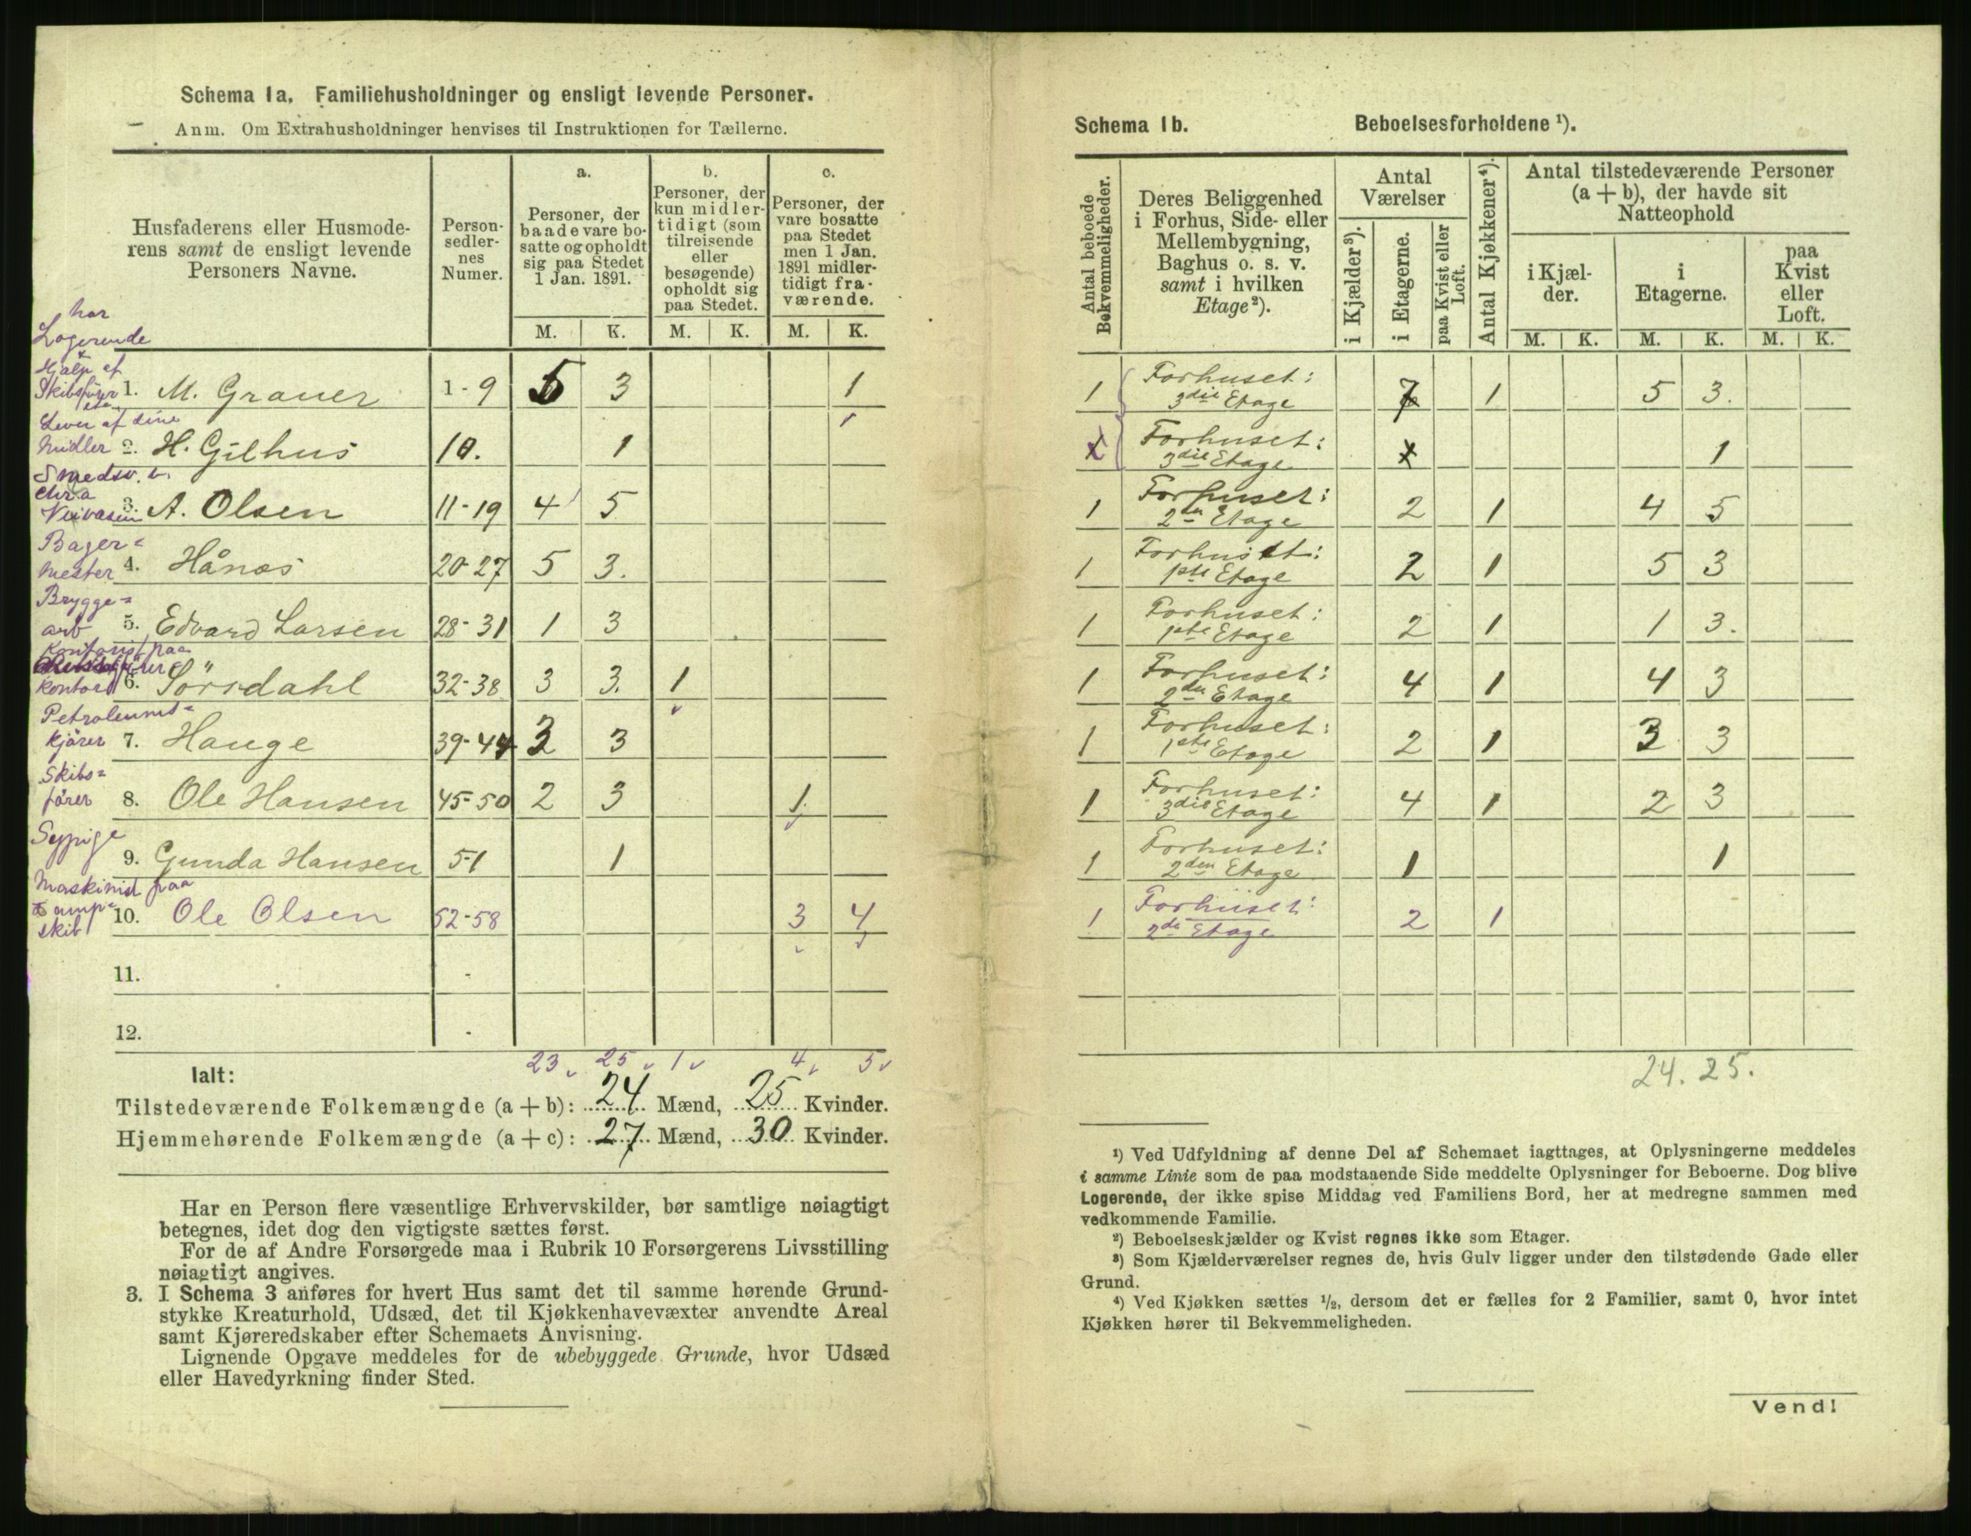 Schema 1a. Familiehusholdninger og ensligt levende Personer.
Anm. Om Extrahusholdninger henvises til Instruktionen for Tællerne.
Husfaderens eller Husmoderens samt de ensligt levende Personers Navne.
Person-sedler-nes Numer.
a. Personer, der baade vare bosatte og opholdt sig paa Stedet 1 Jan. 1891.
b. Personer, der kun midlertidigt (som tilreisende eller besøgende) opholdt sig paa Stedet.
c. Personer, der vare bosatte paa Stedet men 1 Jan. 1891 midlertidigt fraværende.
M. K. M. K. M. K.
har Logerende
Hjælp af Skibsfører 1. M. Grauer 1-9 5 3 1
Lever af sine Midler 2. H. Gilhus 10. 1
Smedsv. 3. A. Olsen 11-19 4 5
Bager=mester 4. Hånæs 20-27 5 3.
Brygge=arb 5. Edvard Larsen 28-31 1 3
Kontorist paa kontor 6. Sörsdahl 32-38 3 3. 1
Petroleums=kjører 7. Hauge 39-44 3 3
Skibs=fører 8. Ole Hansen 45-50 2 3 1
Sypige 9. Gunda Hansen 51 1
Maskinist paa Dampskib 10. Ole Olsen 52-58 3 4
11. -
12. -
23 25 1 4 5
Ialt:
Tilstedeværende Folkemængde (a+b): 24 Mænd, 25 Kvinder.
Hjemmehørende Folkemængde (a+c): 27 Mænd, 30 Kvinder.
Har en Person flere væsentlige Erhvervskilder, bør samtlige nøiagtigt
betegnes, idet dog den vigtigste sættes først.
For de af Andre Forsørgede maa i Rubrik 10 Forsørgerens Livsstilling
nøiagtigt angives.
3. I Schema 3 anføres for hvert Hus samt det til samme hørende Grund-
stykke Kreaturhold, Udsæd, det til Kjøkkenhavevæxter anvendte Areal
samt Kjøreredskaber efter Schemaets Anvisning.
Lignende Opgave meddeles for de ubebyggede Grunde, hvor Udsæd
eller Havedyrkning finder Sted.
Schema 1b. Beboelsesforholdene ¹).
Antal beboede Bekvemmeligheder.
Deres Beliggenhed i Forhus, Side- eller Mellembygning, Baghus o. s. v. samt i hvilken Etage ²).
Antal Værelser
i Kjælder ³).
i Etagerne.
paa Kvist eller Loft.
Antal Kjøkkener ⁴).
Antal tilstedeværende Personer (a+b), der havde sit Natteophold
i Kjælder.
i Etagerne.
paa Kvist eller Loft.
M. K. M. K. M. K.
1 Forhuset: 3die Etage 7 1 5 3.
Forhuset: 3die Etage 1
1 Forhuset: 2den Etage 2 1 4 5
1 Forhuset: 1ste Etage 2 1 5 3
1 Forhuset: 1ste Etage 2 1 1 3.
1 Forhuset: 2den Etage 4 1 4 3
1 Forhuset: 1ste Etage 2 1 3 3
1 Forhuset: 3die Etage 4 1 2 3
1 Forhuset: 2den Etage 1 1
1 Forhuset: 2de Etage 2 1
24. 25.
¹) Ved Udfyldning af denne Del af Schemaet iagttages, at Oplysningerne meddeles
i samme Linie som de paa modstaaende Side meddelte Oplysninger for Beboerne. Dog blive
Logerende, der ikke spise Middag ved Familiens Bord, her at medregne sammen med
vedkommende Familie.
²) Beboelseskjælder og Kvist regnes ikke som Etager.
³) Som Kjælderværelser regnes de, hvis Gulv ligger under den tilstødende Gade eller
Grund.
⁴) Ved Kjøkken sættes ½, dersom det er fælles for 2 Familier, samt 0, hvor intet
Kjøkken hører til Bekvemmeligheden.
Vend!